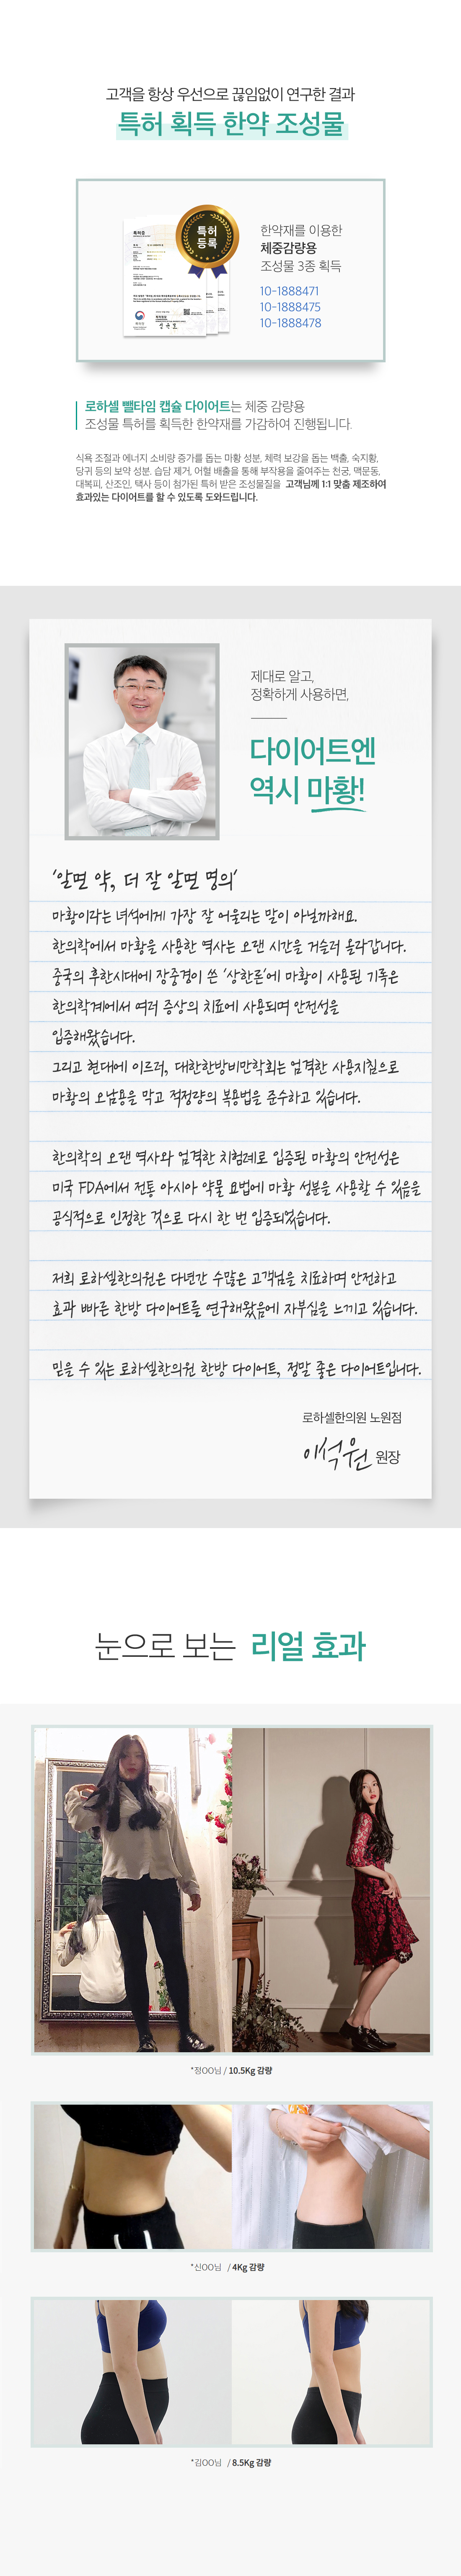 고객을 항상 우선으로 끊임없이 연구한 결과
특허 획득 한약 조성물
특허
등록
한약재를 이용한
체중감량용
조성물 3종 획득
10-1888471
10-1888475
10-1888478
로하셀 뺄타임 캡슐 다이어트는 체중 감량용
조성물 특허를 획득한 한약재를 가감하여 진행됩니다.
식욕 조절과 에너지 소비량 증가를 돕는 마황 성분, 체력 보강을 돕는 백출, 숙지황,
당귀 등의 보약 성분. 습담 제거, 어혈 배출을 통해 부작용을 줄여주는 천궁, 맥문동,
대복피, 산조인, 택사 등이 첨가된 특허 받은 조성물질을 고객님께 1:1 맞춤 제조하여
효과있는 다이어트를 할 수 있도록 도와드립니다.
제대로 알고,
정확하게 사용하면,
다이어트엔
역시 마황!
'알면 약, 더 잘 알면 명의'
마황이라는 녀석에게 가장 잘 어울리는 말이 아닐까해요.
한의학에서 마황을 사용한 역사는 오랜 시간을 거슬러 올라갑니다.
중국의 후한시대에 장중경이 쓴 '상한론'에 마황이 사용된 기록은
한의학계에서 여러 증상의 치료에 사용되며 안전성을
입증해왔습니다.
그리고 현대에 이르러, 대한한방비만학회는 엄격한 사용지침으로
마황의 오남용을 막고 적정량의 복용법을 준수하고 있습니다.
한의학의 오랜 역사와 엄격한 치험례로 입증된 마황의 안전성은
미국 FDA에서 전통 아시아 약물 요법에 마황 성분을 사용할 수 있음을
공식적으로 인정한 것으로 다시 한 번 입증되었습니다.
저희 로하셀한의원은 다년간 수많은 고객님을 치료하며 안전하고
효과 빠른 한방 다이어트를 연구해왔음에 자부심을 느끼고 있습니다.
믿을 수 있는 로하셀한의원 한방 다이어트, 정말 좋은 다이어트입니다.
로하셀한의원 노원점
이석원 원장
눈으로 보는 리얼 효과
*정OO님 / 10.5Kg 감량
*신OO님 / 4Kg 감량
*김OO님 / 8.5Kg 감량